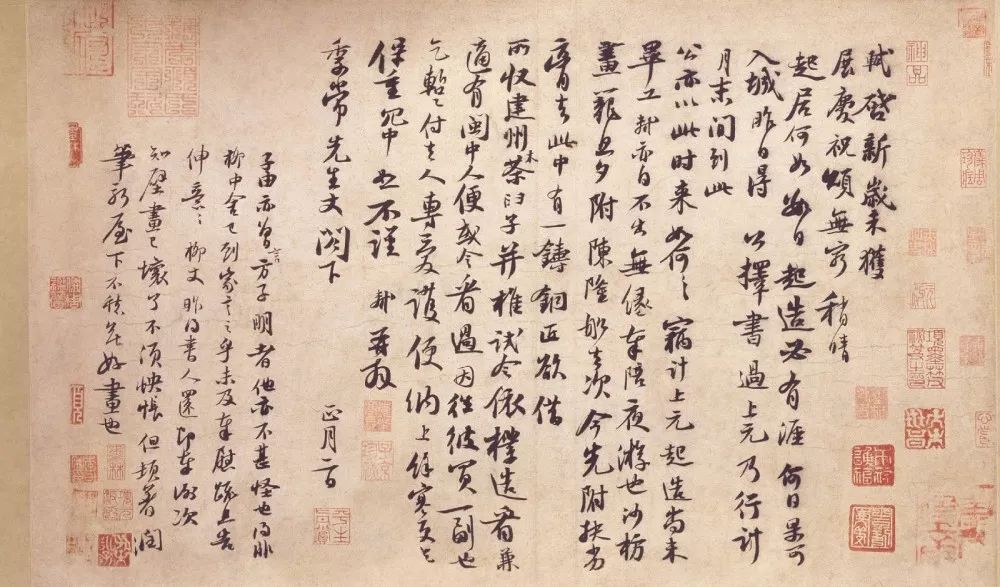 軾啓新歲未獲
展慶祝頌無窮稍晴
起居何如數日起造必有涯何日果可
入城昨日得公擇書過上元乃行計
月末間到此
公亦以此時來如何如何竊計上元起造尚未
畢工軾亦自不出無緣奉陪夜游也沙枋
畫籠旦夕附陳隆船去次今先附扶劣
膏去此中有一鑄銅匠欲借
所收建州木茶臼子并椎試令依樣造看兼
適有閩中人便或令看過因往彼買一副也
乞暫付去人專愛護便納上餘寒更乞
保重冗中恕不謹軾再拜
季常先生丈閣下
正月二日
子由亦曾言方子明者他亦不甚怪也得非
柳中舍已到家言之乎未及奉慰疏且告
伸意伸意柳丈昨得書人還即奉謝次
知壁畫已壞了不須怏悵但頓著潤
筆新屋下不愁無好畫也